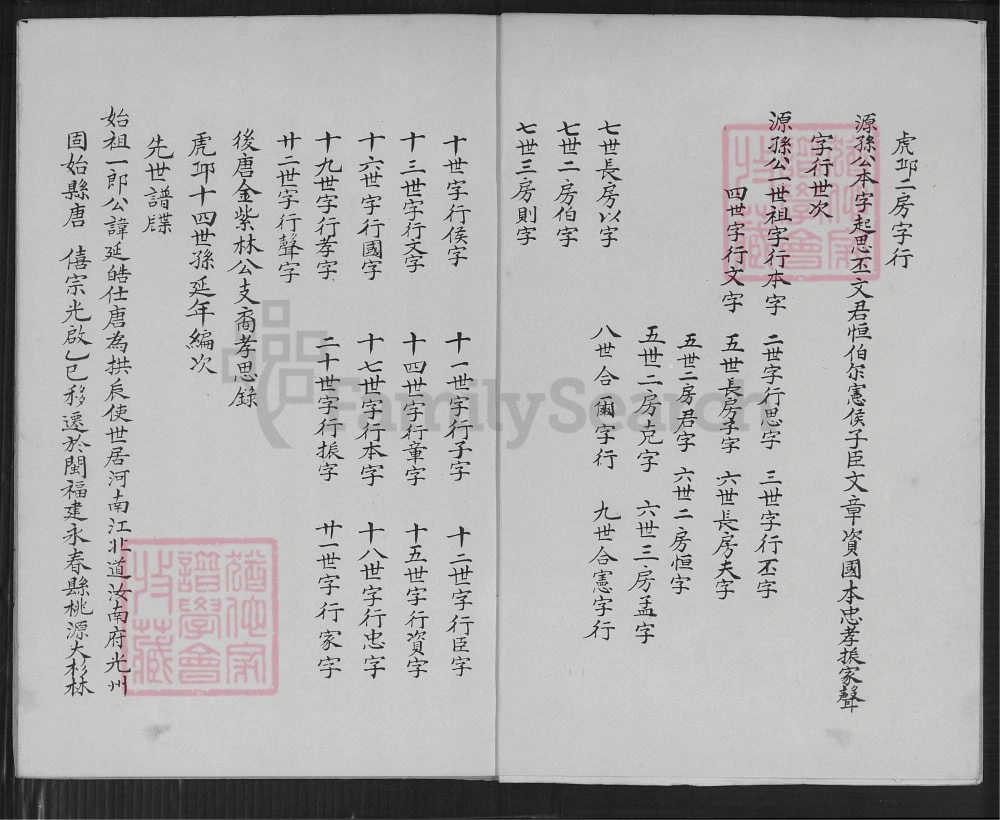 虎邱二房字行
源孫公本字起思丕文君恒伯尔憲侯子臣文章資國本忠孝振家聲
字行世次
源孫公一世祖字行本字 二世字行思字 三世字行丕字
四世字行文字 五世長房子字 六世長房夫字
五世二房君字 六世二房恒字
五世二房克字 六世三房孟字
七世長房以字 八世合爾字行 九世合憲字行
七世二房伯字
七世三房則字
十世字行侯字 十一世字行子字 十二世字行臣字
十三世字行文字 十四世字行章字 十五世字行資字
十六世字行國字 十七世字行本字 十八世字行忠字
十九世字行孝字 二十世字行振字 廿一世字行家字
廿二世字行聲字
後唐金紫林公支裔孝思錄
虎邱十四世孫延年編次
先世譜牒
始祖一郎公諱延皓仕唐為拱辰使世居河南江北道汝南府光州
固始縣唐 僖宗光啟乙巳移遷於閩福建永春縣桃源大杉林
FamilySearch